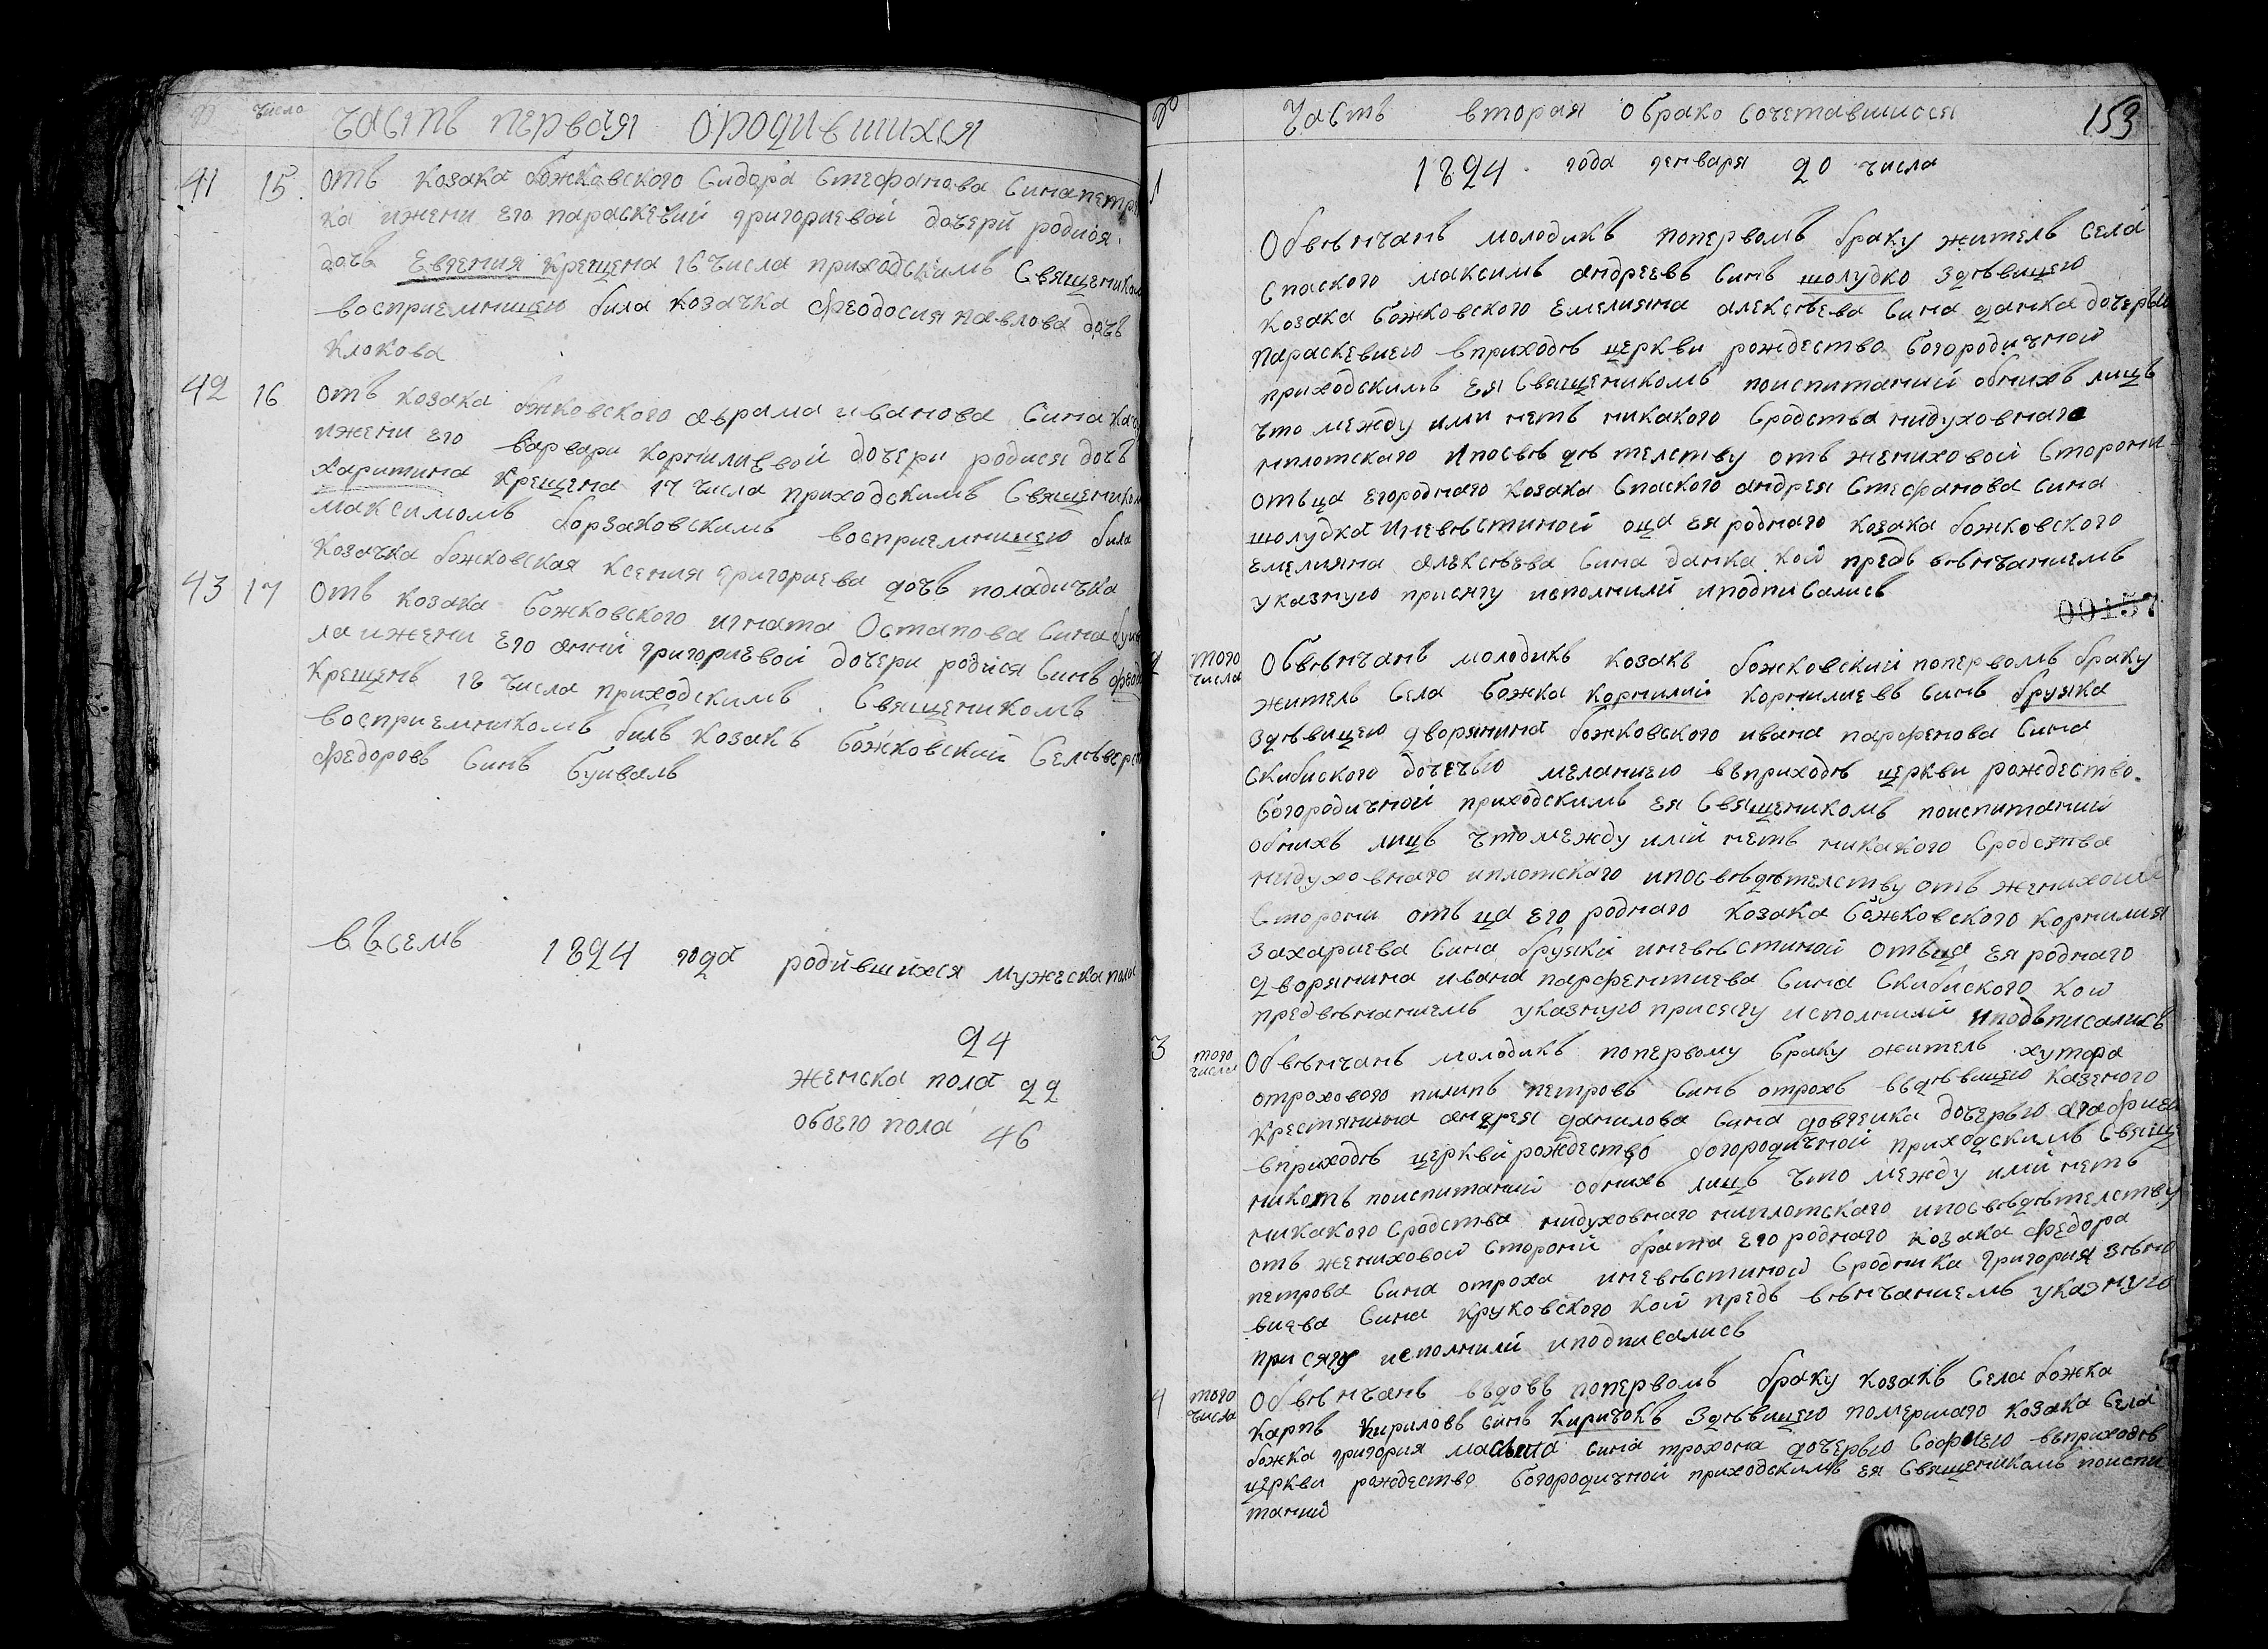 № число часть первая ородившихся
41 15 отъ козака божковского Сидора Стефанова Сина петре
ка ижени его параскевий григориевой дочери родися
дочъ Евгения крещена 16 числа приходскимъ Священиком
восприемницею била козачка феодосия павлова дочъ
клокова
42 16 отъ козака бжковского аврама иванова Сина
ижени его варвари корнилиевой дочери родися дочъ
харитина крещена 17 числа приходскимъ Священиком
максимомъ борзаковскимъ восприемницею била
козачка божковская ксения григориева дочъ поладичка
43 17 отъ козака божковского игната Остапова Сина
ла ижени его анни григориевой дочери родися Синъ
крещенъ 18 числа приходскимъ Священикомъ
восприемникомъ билъ козакъ божковский
федоровъ Синъ буивалъ
въсемъ 1824 года родившихся мужеска пола
24
женска пола 22
обоего пола 46
№ Часть вторая обрако сочетавшихся 153
1 1824 года генваря 20 числа
Обвѣнчанъ молодикъ поперволъ браку житель села
спаского максимъ андреевъ Синъ шолудко здѣвицею
козака божковского Емелияна алексѣева Сина данка дочерью
параскевиею вприходѣ церкви рождество богородичной
приходскимъ ея Священикомъ поиспитаний обоихъ лицъ
что между ими нетъ никакого Сродства нидуховнаго
ниплотскаго ипосвѣдѣтелству отъ жениховой Сторони
отьца егороднаго козака Спаского андрея Стефанова Сина
шолудка иневѣстиной оца ея роднаго козака божковского
емелияна алексѣева Сина данка кой предъ вѣнчаниемъ
указную присягу исполнили иподписались
00157
2 того числа Обвѣнчанъ молодикъ козакъ божковский поперволъ браку
житель Села божка корнилий корнилиевъ Синъ бруяка
здѣвицею дворянина божковского ивана парфенова Сина
Скибиского дочечью меланиею въприходѣ церкви рождество
богородичной приходскимъ ея Священикомъ поиспитаний
обоихъ лицъ чтомежду ими нетъ никакого Сродства
нидуховнаго иплотскаго ипосвѣдѣтелству отъ жениховой
Сторони отъца его роднаго козака божковского корнилия
захариева Сина бруяки иневѣстиной отьца ея роднаго
дворянина ивана парфентиева Сина Скибиского кои
предвѣнаниемъ указную присягу исполнили иподъписались
3 того числа Обвѣнчанъ молодикъ попервому браку житель хутора
отрохового пилипъ петровъ Синъ отрохъ въдѣвицею казеного
крестянина андрея данилова Сина довгенка дочерью агафиею
вприходѣ церкви рождество богородичной приходскимъ Свящ
никомъ поиспитаний обоихъ лицъ что между ими нетъ
никакого Сродства нидуховнаго ниплотскаго ипосвѣдѣтелству
отъ жениховой сторони брата его роднаго козака федора
петрова Сина отроха иневѣстиной Сродника григория зѣно
виева Сина круковского кой предъ вѣнчаниемъ указную
присягу исполнили иподписались
4 того числа Обвѣнчанъ въдовъ поперволъ браку козакъ Села божка
карпъ кириловъ синъ киричокъ здѣвицею помершаго козака Села
божка григория сина трохона дочерью Софиею въприходѣ
церкви рождество богородичной приходскимъ ея Священикомъ поиспи
таний